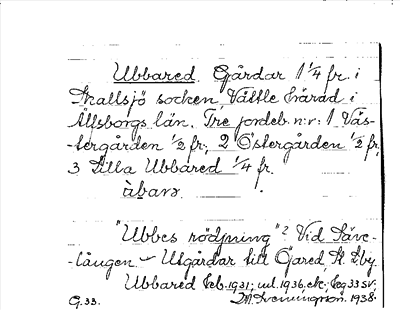 Ubbared. Gårdar 1 1/4 fr. i
Skallsjö socken, Vättle härad i
Älfsborgs län. Tre jordeb. n:r: 1 Väs-
-tergården 1/2 fr.; 2 Östergården 1/2 fr,
3 Lilla Ubbared 1/4 fr.
"Ubbes rödjning"? Vid Säve-
-lången - Utgårdar till Öjared, St. Lby.
Ubbared feb. 1931; 1936,
G. 33. 1938.